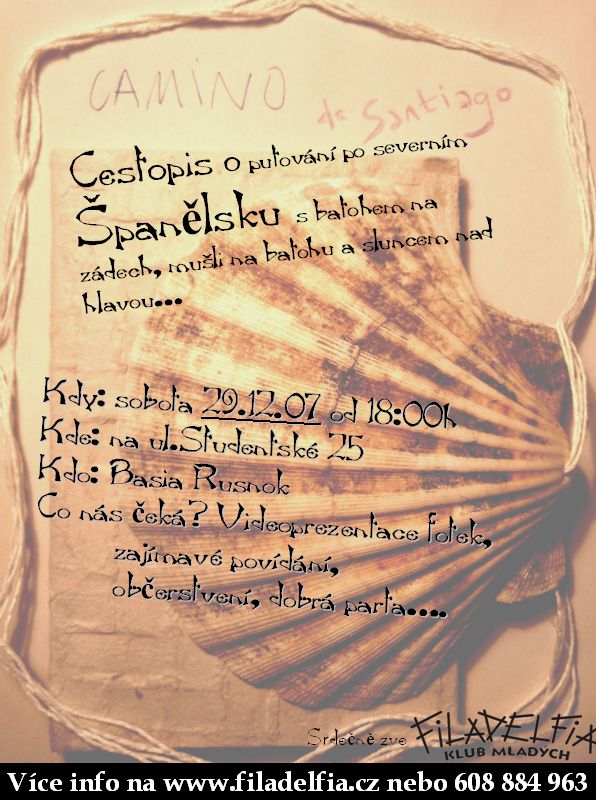 CAMINO
de Santiago
Cestopis o putování po severním
Španělsku s batohem na
zádech, mušli na batohu a sluncem nad
hlavou...
Kdy: sobota 29.12.07 od 18:00h
Kde: na ul.Studentské 25
Kdo: Basia Rusnok
Co nás čeká? Videoprezentace fotek,
zajímavé povídání,
občerstvení, dobrá parta....
Srdečně zve FiLADELFiA
KLUB MLADYCH
Více info na www.filadelfia.cz nebo 608 884 963